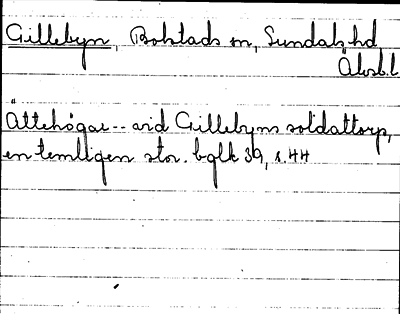 Gillebyn, Bolstads sn, Sundals hd
Älvsb.l
Ättehögar -- vid Gillebyns soldattorp,
en temligen stor. bglk 39, s.44